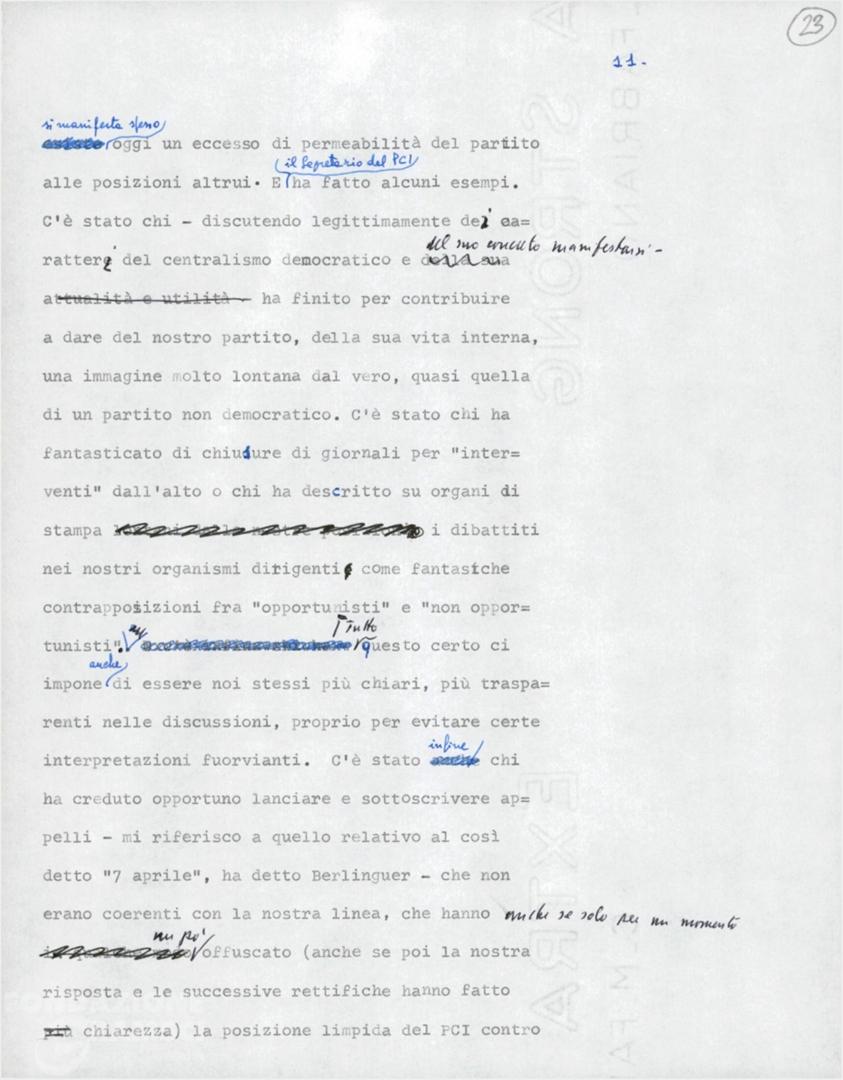 23
11.
si manifesta spesso
oggi un eccesso di permeabilità del partito
il Segretario del PCI
alle posizioni altrui. E ha fatto alcuni esempi.
C'è stato chi - discutendo legittimamente dei ca=
del suo concreto manifestarsi -
ratteri del centralismo democratico e della sua
attualità e utilità - ha finito per contribuire
a dare del nostro partito, della sua vita interna,
una immagine molto lontana dal vero, quasi quella
di un partito non democratico. C'è stato chi ha
fantasticato di chiusure di giornali per "inter=
venti" dall'alto o chi ha descritto su organi di
stampa i dibattiti
nei nostri organismi dirigenti come fantastiche
contrapposizioni fra "opportunisti" e "non oppor=
Tutto
tunisti". questo certo ci
anche
impone di essere noi stessi più chiari, più traspa=
renti nelle discussioni, proprio per evitare certe
infine
interpretazioni fuorvianti. C'è stato anche chi
ha creduto opportuno lanciare e sottoscrivere ap=
pelli - mi riferisco a quello relativo al così
detto "7 aprile", ha detto Berlinguer - che non
erano coerenti con la nostra linea, che hanno anche se solo per un momento
un po'
offuscato (anche se poi la nostra
risposta e le successive rettifiche hanno fatto
più chiarezza) la posizione limpida del PCI contro
EXTRA STRONG